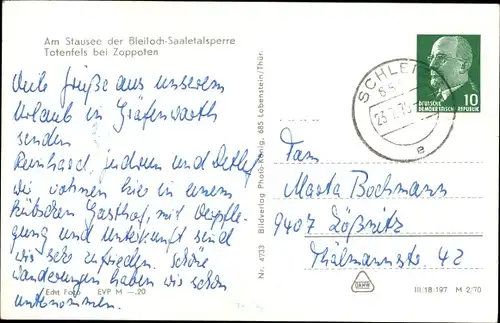 Am Stausee der Bleiloch-Saaletalsperre
Totenfels bei Zoppoten
Viele Grüße aus unserem
Urlaub in Gräfenwarth
senden
Reinhard, Gudrun und Detlef
Wir wohnen hier in einem
hübschen Gasthof, mit Verpfle-
gung und Unterkunft sind
wir sehr zufrieden. Schöne
Wanderungen haben wir schon
unternommen.
Echt Foto EVP M -.20
Nr. 4733 Bildverlag Photo-König, 685 Lobenstein/Thür.
SCHLEIZ
65
23.7.7
e
10
DEUTSCHE
DEMOKRATISCHE REPUBLIK
Fam
Marta Bochmann
9407 Lößnitz
Thälmannstr. 42
DAHW
III/18/197 M 2/70